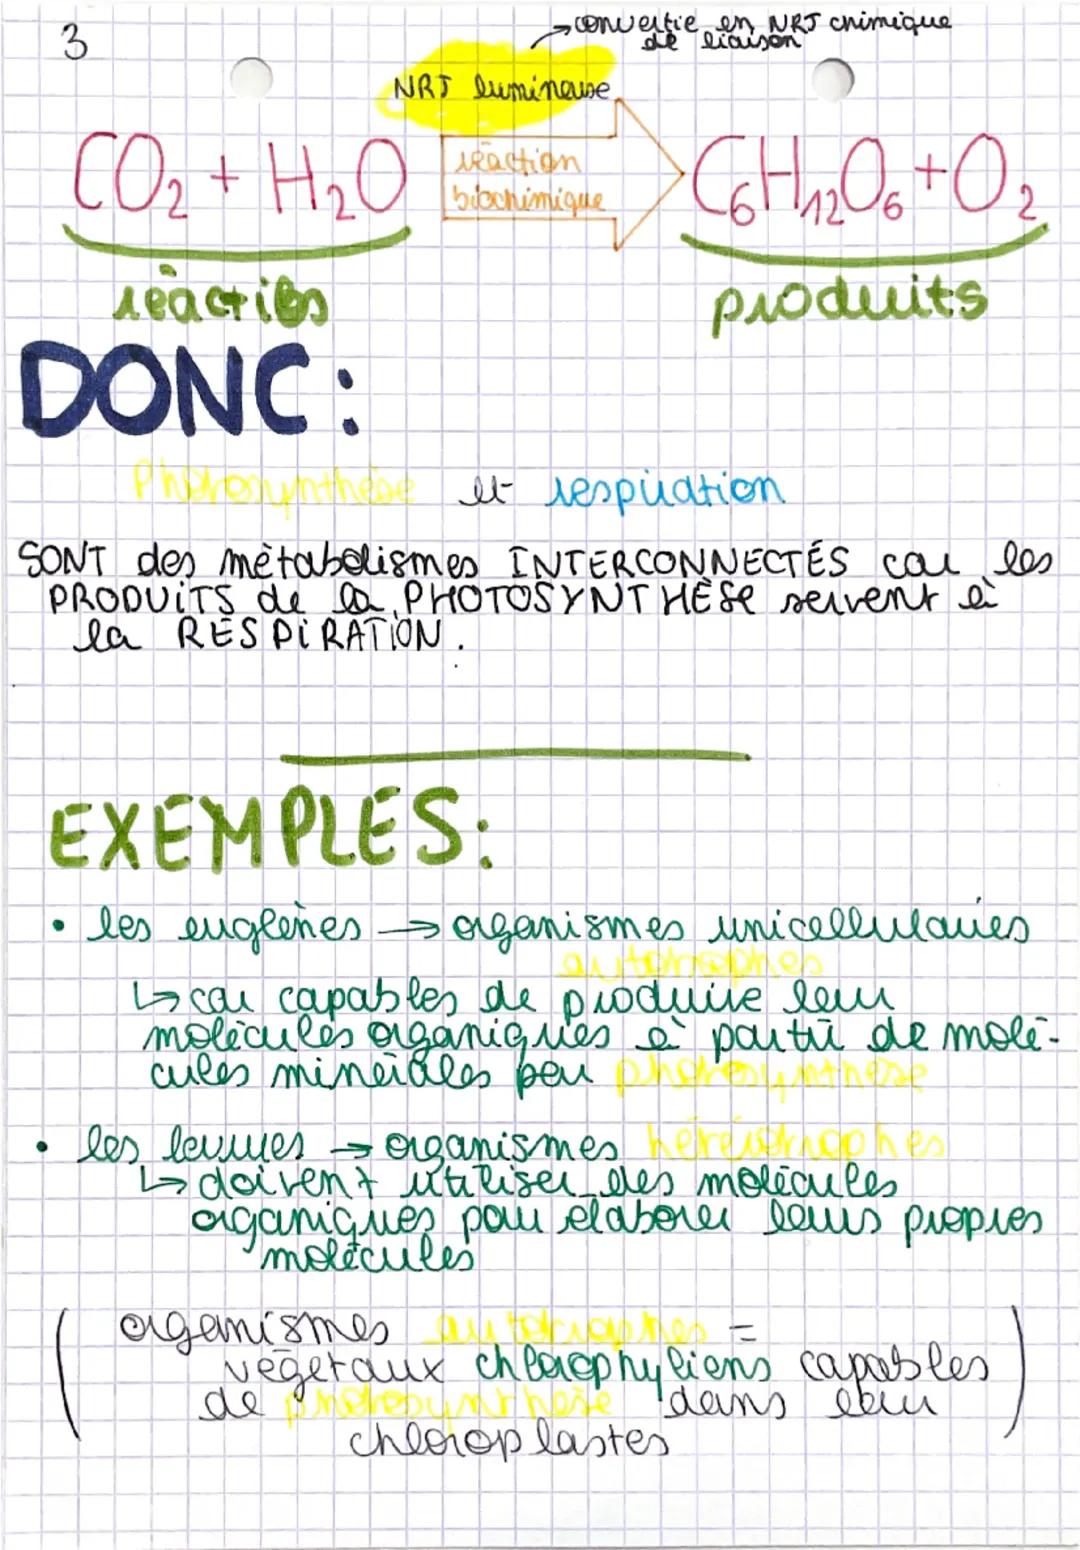 3
→ convertie en NRJ chimique
de liaison
NRJ lumineuse
CO₂ + H₂O réaction biochimique C₆H₁₂O₆ + O₂
réactifs produits
DONC :
Photosynthèse et respiration
SONT des métabolismes INTERCONNECTÉS car les
PRODUITS de la PHOTOSYNTHÈSE servent à
la RESPIRATION.
EXEMPLES :
• les euglènes → organismes unicellulaires
autotrophes
↳ car capables de produire leur
molécules organiques à partir de molé-
cules minérales par photosynthèse
• les levures → organismes hétérotrophes
↳ doivent utiliser des molécules
organiques pour élaborer leurs propres
molécules
( organismes autotrophes =
végétaux chlorophyliens capables
de photosynthèse dans leur
chloroplastes )